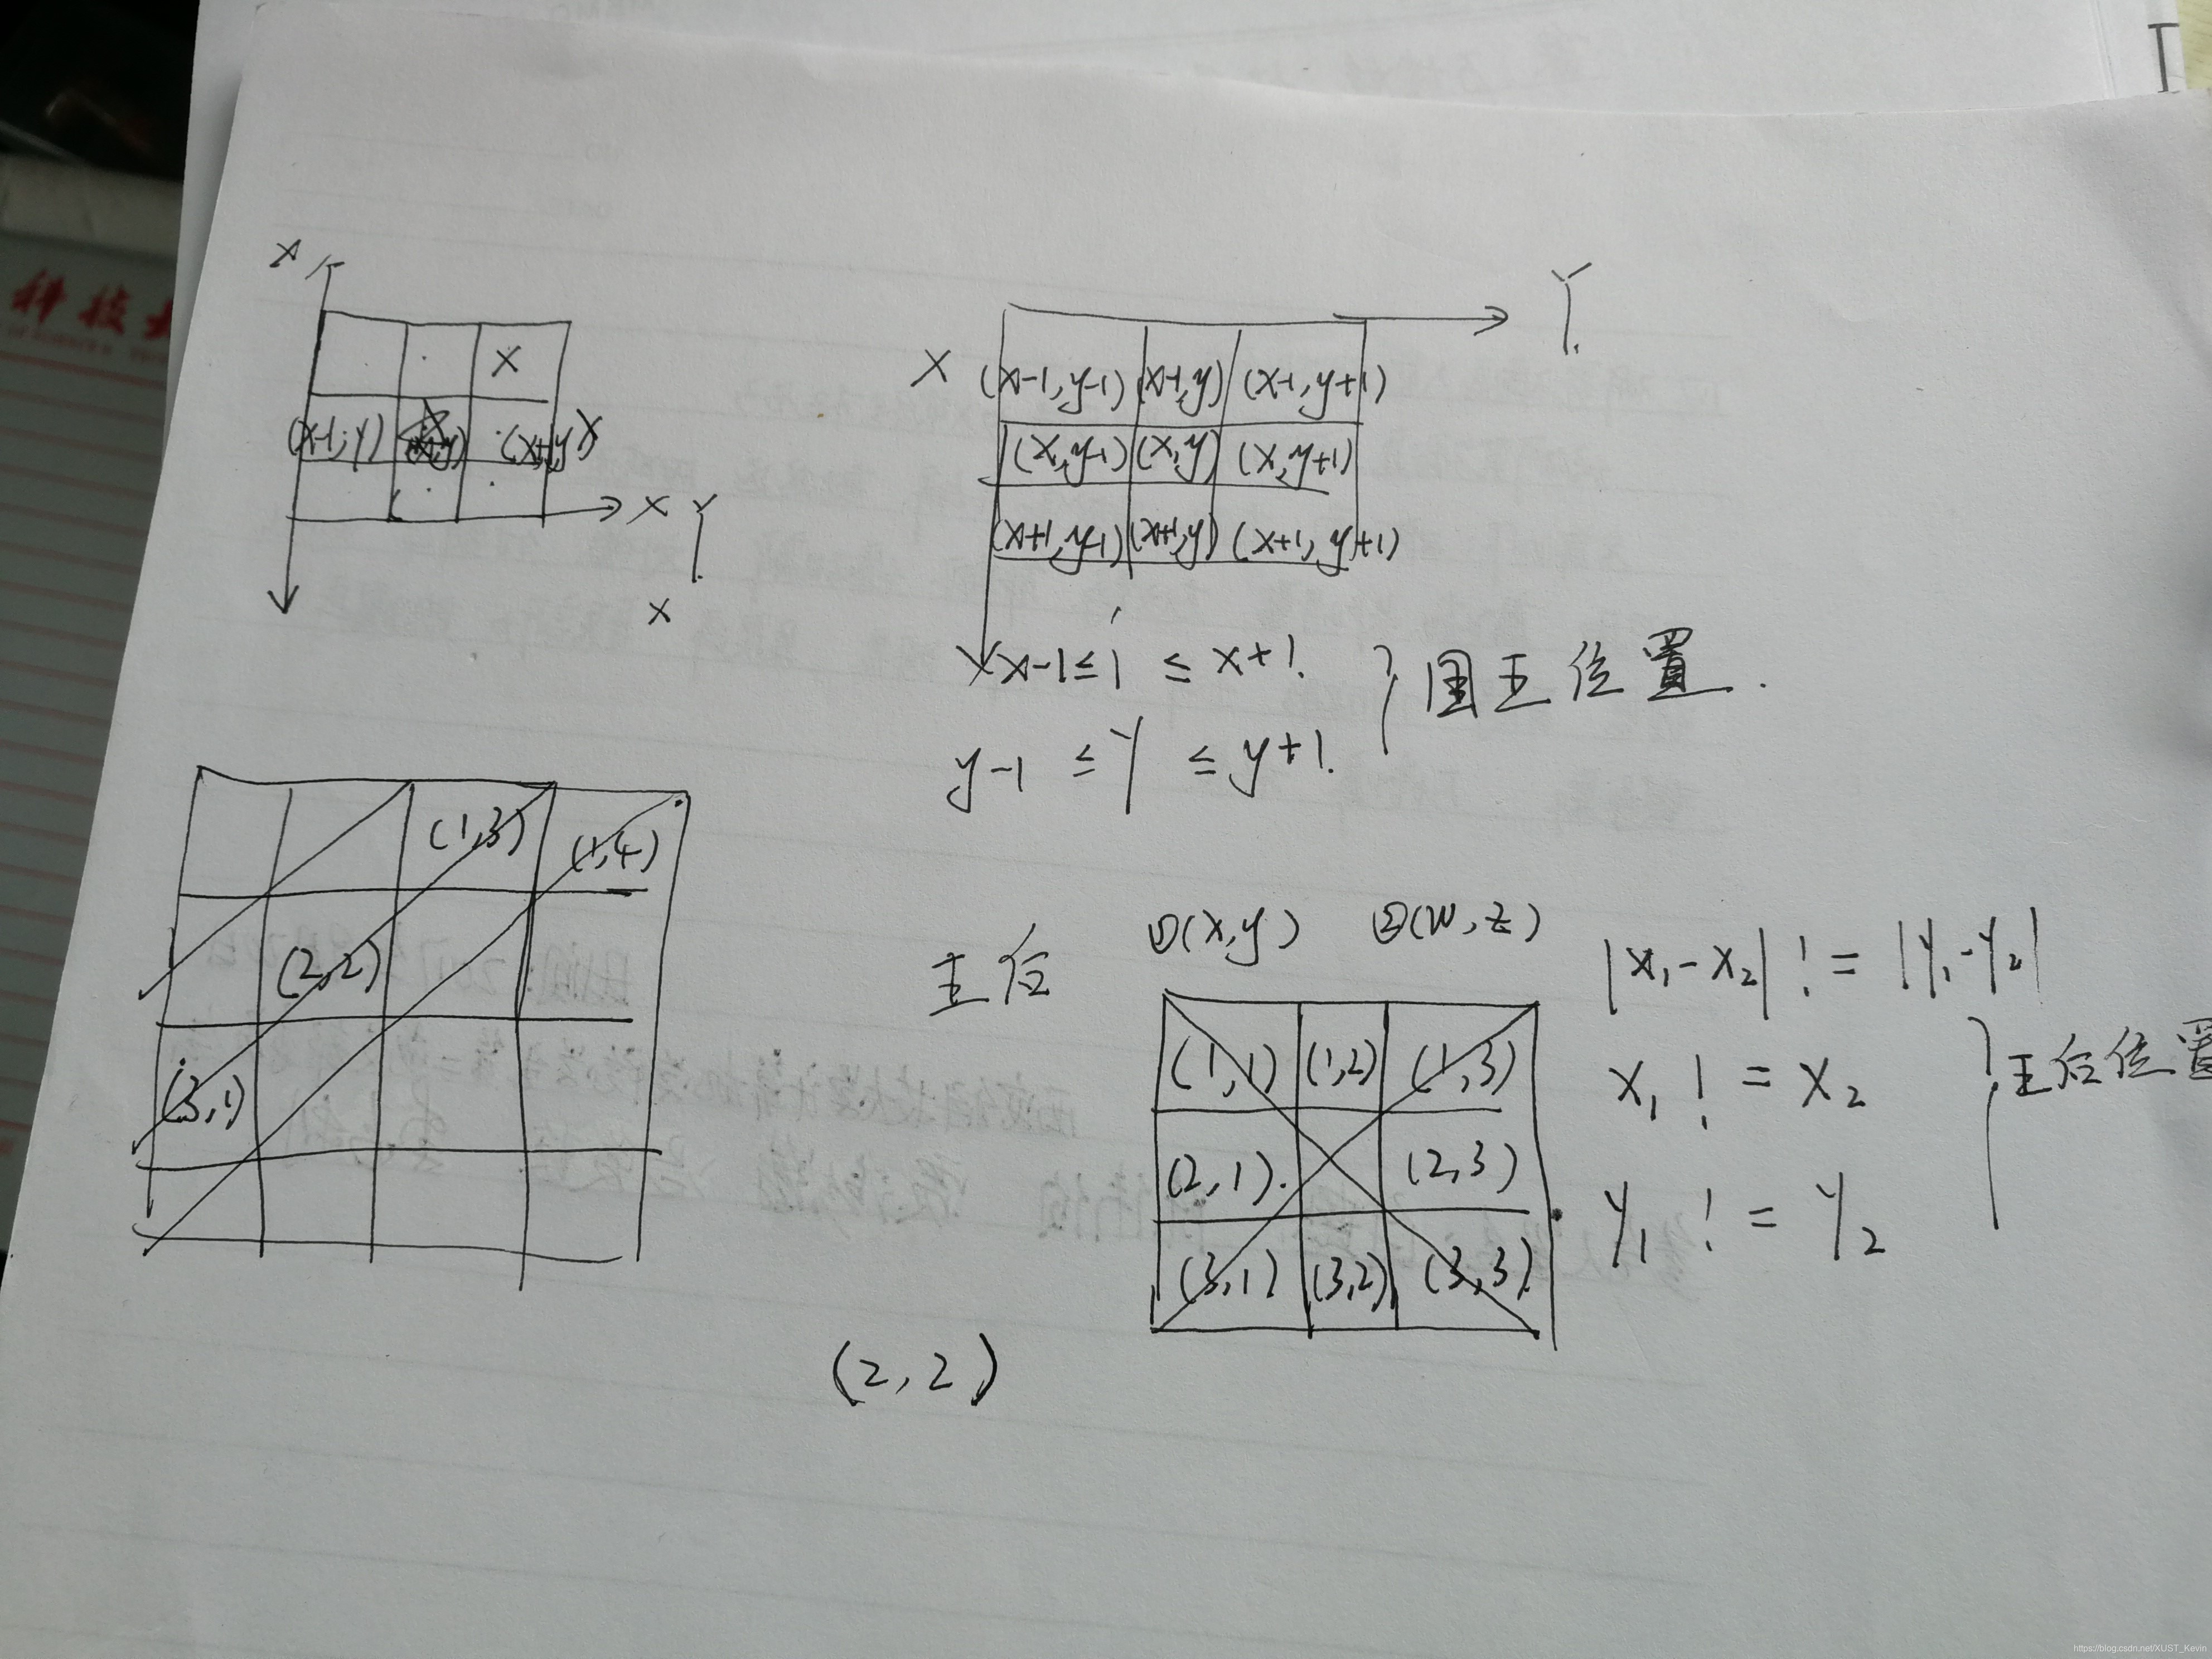 科技大
X
X
(x-1,y) (x+1,y) X
X Y
X
Y
X
(x-1,y-1) (x-1,y) (x-1,y+1)
(x,y-1) (x,y) (x,y+1)
(x+1,y-1) (x+1,y) (x+1,y+1)
x-1≤i≤x+1.
y-1≤Y≤y+1.
}国王位置.
(1,3) (1,4)
(2,2)
(3,1)
王后
①(x,y) ②(w,z)
(1,1) (1,2) (1,3)
(2,1). (2,3)
(3,1) (3,2) (3,3)
|x₁-x₂| != |y₁-y₂|
x₁ != x₂
y₁ != y₂
}王后位置
(2,2)
https://blog.csdn.net/XUST_Kevin